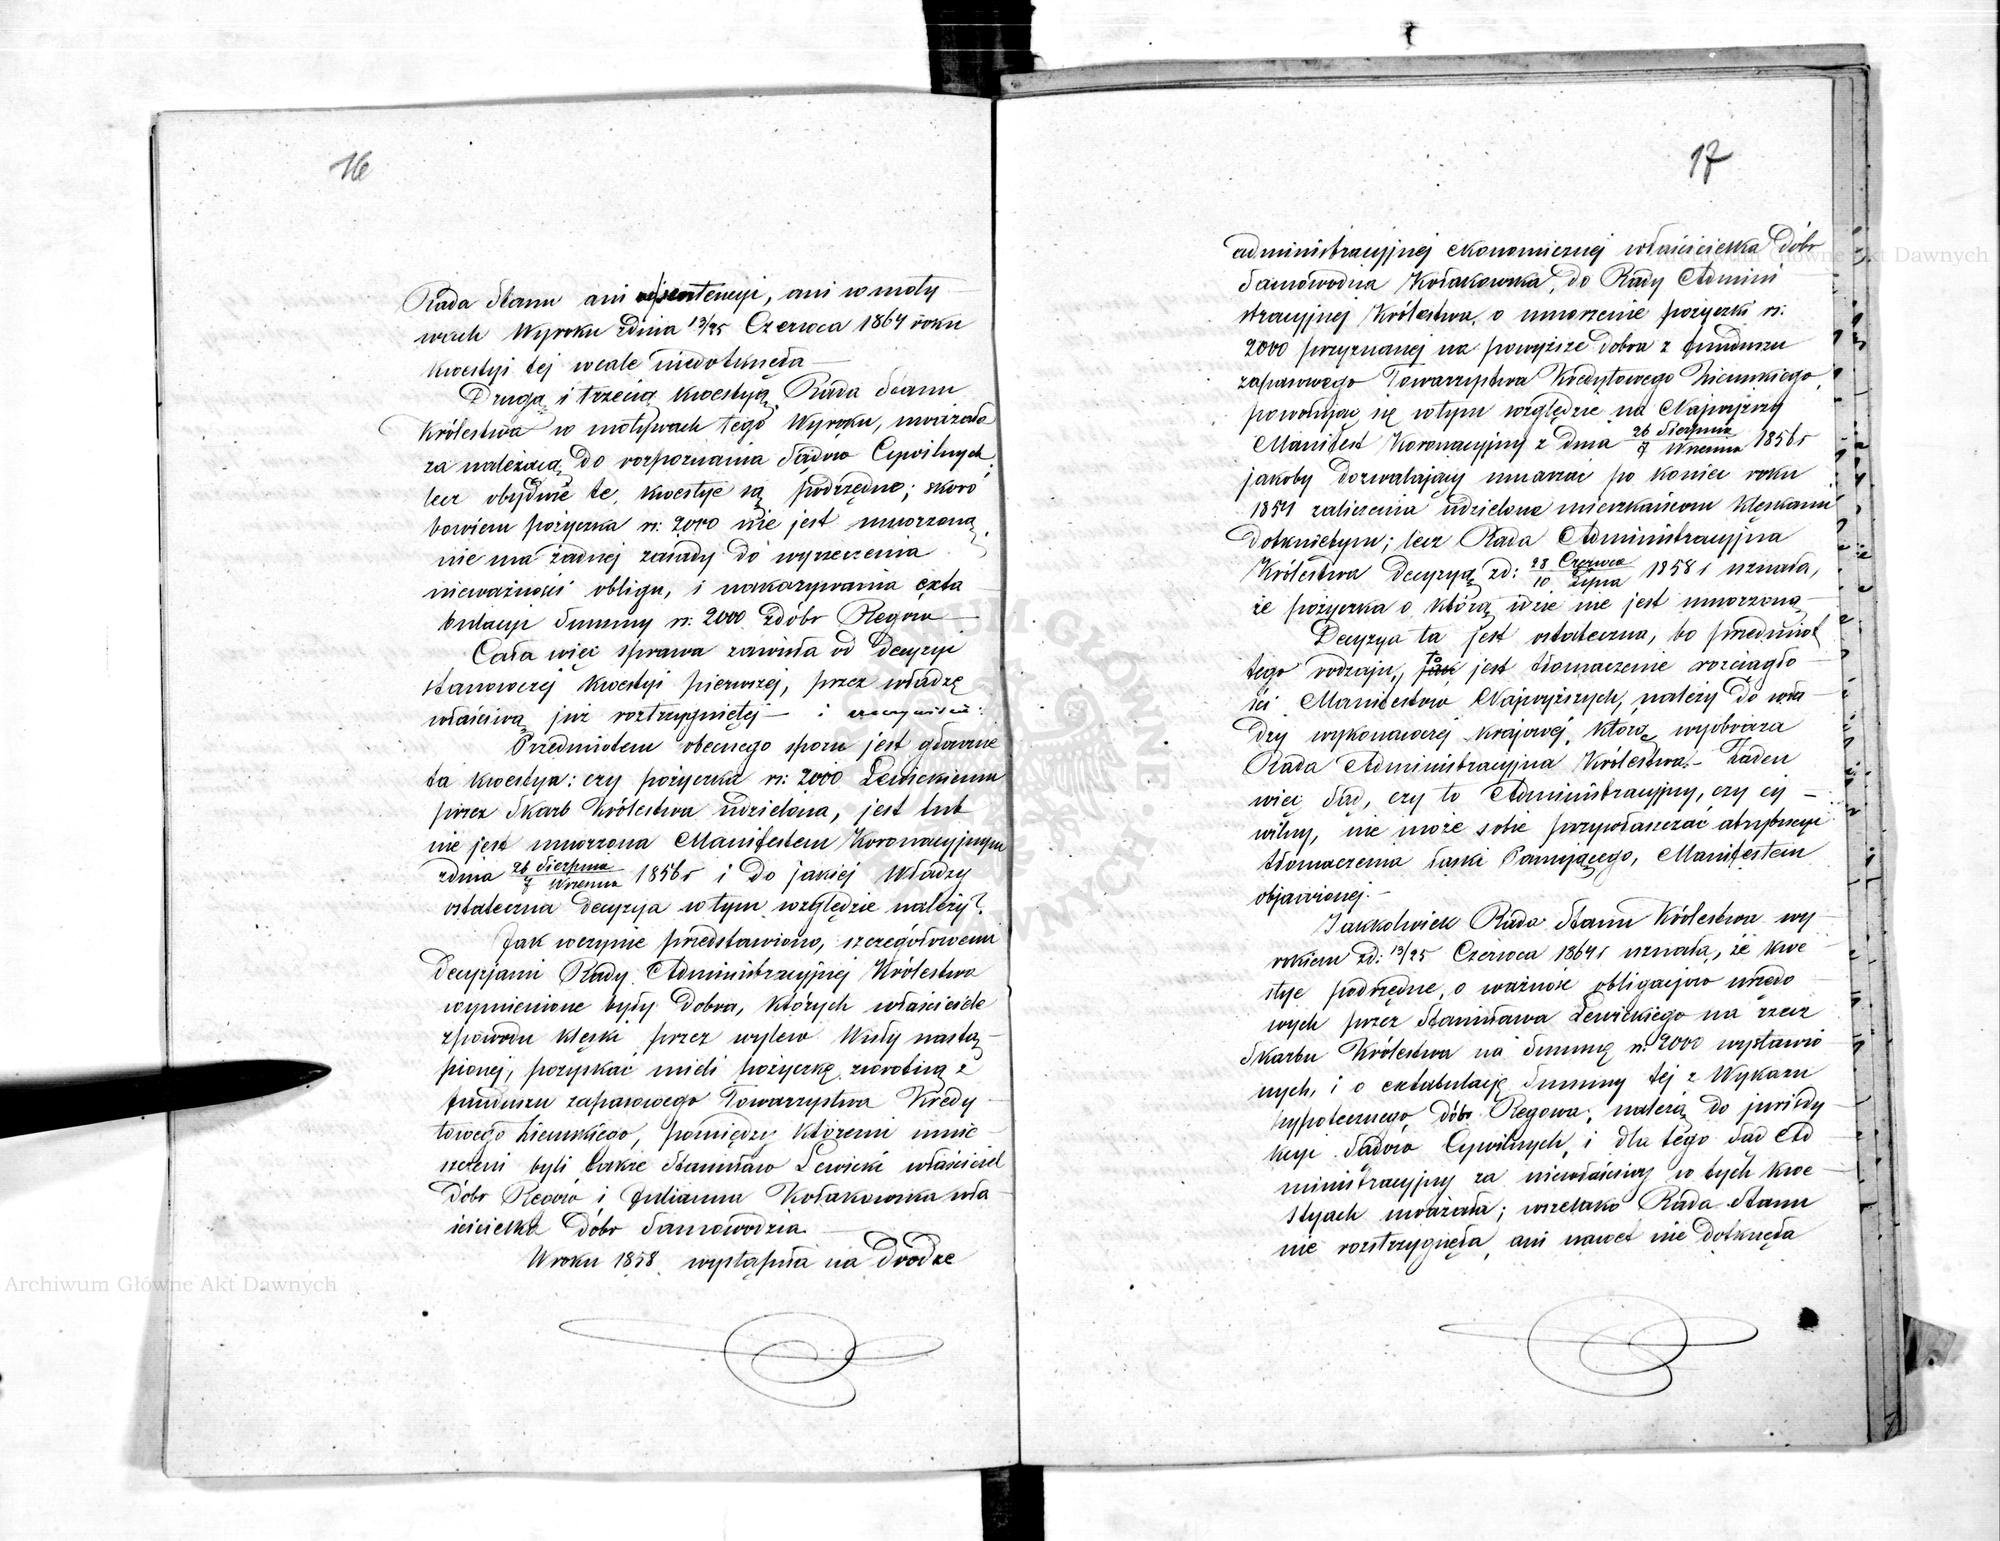 16
Rada Stanu ani w sentencyi, ani w moty
wach Wyroku zdnia 13/25 Czerwca 1864 roku
kwestyi tej wcale niedotknęła —
Drugą i trzecią kwestyą Rada Stanu
Królestwa w motywach tego Wyroku, uważała
za należącą do rozpoznania Sądów Cywilnych
lecz obydwie te kwestye są podrzędne; skoro
bowiem pożyczka rs: 2000 nie jest umorzoną,
nie ma żadnej zasady do wyrzeczenia
nieważności obligu, i nakazywania exta
bulacyi Summy rs: 2000 zdóbr Regow —
Cała więc sprawa zawisła od decyzyi
stanowczej kwestyi pierwszej, przez władzę
właściwą już roztrzygniętej — i
Przedmiotem obecnego sporu jest głównie
ta kwestya: czy pożyczka rs: 2000 Lewickiemu
przez Skarb Królestwa udzielona, jest lub
nie jest umorzona Manifestem Koronacyjnym
zdnia 26 Sierpnia / 7 Września 1856 r i do jakiej Władzy
ostateczna decyzya w tym względzie należy?
Jak wczynie przedstawiono, szczegółowemi
decyzjami Rady Administracyjnej Królestwa
wymienione były dobra, których właściciele
zpowodu klęski przez wylew Wisły nastą
pionej, pozyskać mieli pożyczkę zwrotną z
funduszu zapasowego Towarzystwa Kredy
towego Ziemskiego, pomiędzy któremi umie
szczeni byli także Stanisław Lewicki właściciel
dóbr Regów i Julianna Kołakowska wła
ścicielka dóbr Samowodzia —
W roku 1858 wystąpiła na drodze
17
administracyjnej ekonomicznej właścicielka dóbr
Samowodzia Kołakowska, do Rady Admini
stracyjnej Królestwa, o umorzenie pożyczki rs:
2000 przyznanej na powyższe dobra z funduszu
zapasowego Towarzystwa Kredytowego Ziemskiego,
powołując się wtym względzie na Najwyższy
Manifest Koronacyjny z dnia 26 Sierpnia / 7 Września 1856 r
jakoby dozwalający umarzać po koniec roku
1854 zaliczenia udzielone mieszkańcom klęskami
dotkniętym; lecz Rada Administracyjna
Królestwa decyzyą zd: 28 Czerwca / 10 Lipca 1858 r uznała,
że pożyczka o którą idzie nie jest umorzoną —
Decyzya ta jest ostateczna, bo przedmiot
tego rodzaju, to jest tłomaczenie rozciągło
ści Manifestów Najwyższych, należy do wła
dzy wykonawczej krajowej, którą wyobraża
Rada Administracyjna Królestwa. — Żaden
więc Sąd, czy to Administracyjny, czy cy —
wilny, nie może sobie przywłaszczać atrybucyi
tłomaczenia łaski Panującego, Manifestem
objawionej. —
Jakkolwiek Rada Stanu Królestwa wy
rokiem zd: 13/25 Czerwca 1864 r uznała, że kwe
stye podrzędne, o ważność obligacyów urzędo
wych przez Stanisława Lewickiego na rzecz
Skarbu Królestwa na Summę rs: 2000 wystawio
nych, i o extabulacyę Summy tej z Wykazu
hypotecznego dóbr Regowa, należą do juryzdy
kcyi Sądów Cywilnych, i dla tego Sąd Ad
ministracyjny za niewłaściwy w tych kwe
styach uważała; wszelako Rada Stanu
nie rozstrzygnęła, ani nawet nie dotknęła
Archiwum Główne Akt Dawnych
Archiwum Główne Akt Dawnych